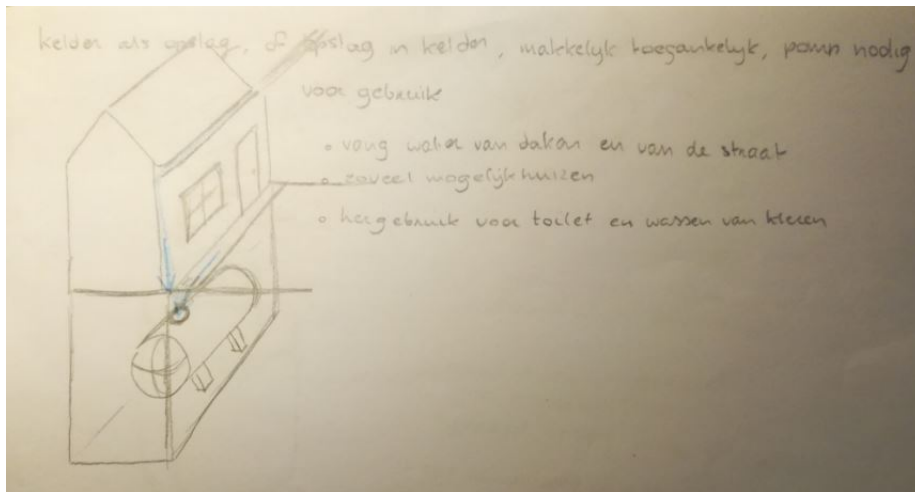 kelder als opslag, of opslag in kelder, makkelijk toegankelijk, pomp nodig
voor gebruik
• vang water van daken en van de straat
• zoveel mogelijk huizen
• hergebruik voor toilet en wassen van kleren